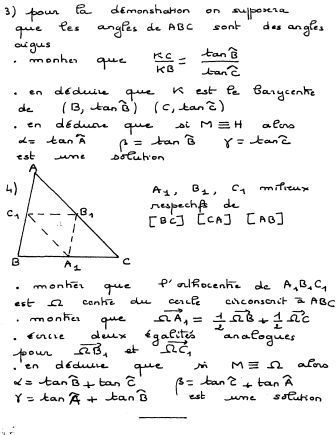 3) pour la démonstration on supposera
que les angles de ABC sont des angles
aigus
. montrer que KC/KB = tan B̂/tan Ĉ
. en déduire que K est le barycentre
de (B, tan B̂) (C, tan Ĉ)
. en déduire que si M ≡ H alors
α = tan Â β = tan B̂ γ = tan Ĉ
est une solution
4)
A
A₁, B₁, C₁ milieux
respectifs de
[BC] [CA] [AB]
C₁ B₁
B A₁ C
. montrer que l'orthocentre de A₁B₁C₁
est Ω centre du cercle circonscrit à ABC
. montrer que ΩA₁ = 1/2 ΩB + 1/2 ΩC
. écrire deux égalités analogues
pour ΩB₁ et ΩC₁
. en déduire que si M ≡ Ω alors
α = tan B̂ + tan Ĉ β = tan Ĉ + tan Â
γ = tan Â + tan B̂ est une solution